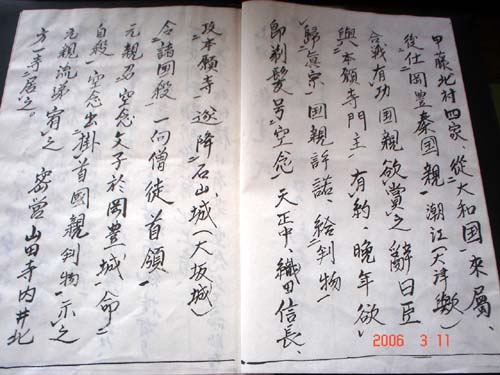 甲藤北村四家、従大和国一来属、
後仕岡豊秦国親一潮江(大津歟)
合戦有功国親欲賞之辞曰臣
與本願寺門主一有約、晩年欲
帰真宗一国親許諾、給判物一
即剃髪号空念一天正中、織田信長、
攻本願寺遂降石山城(大坂城)
令諸国殺一向僧徒首領一
元親召空念父子於岡豊城一命
自殺一空念出掛首国親判物一示之
元親流涕宥之密営山田寺内井北
方一寺居之。
2006 3 11